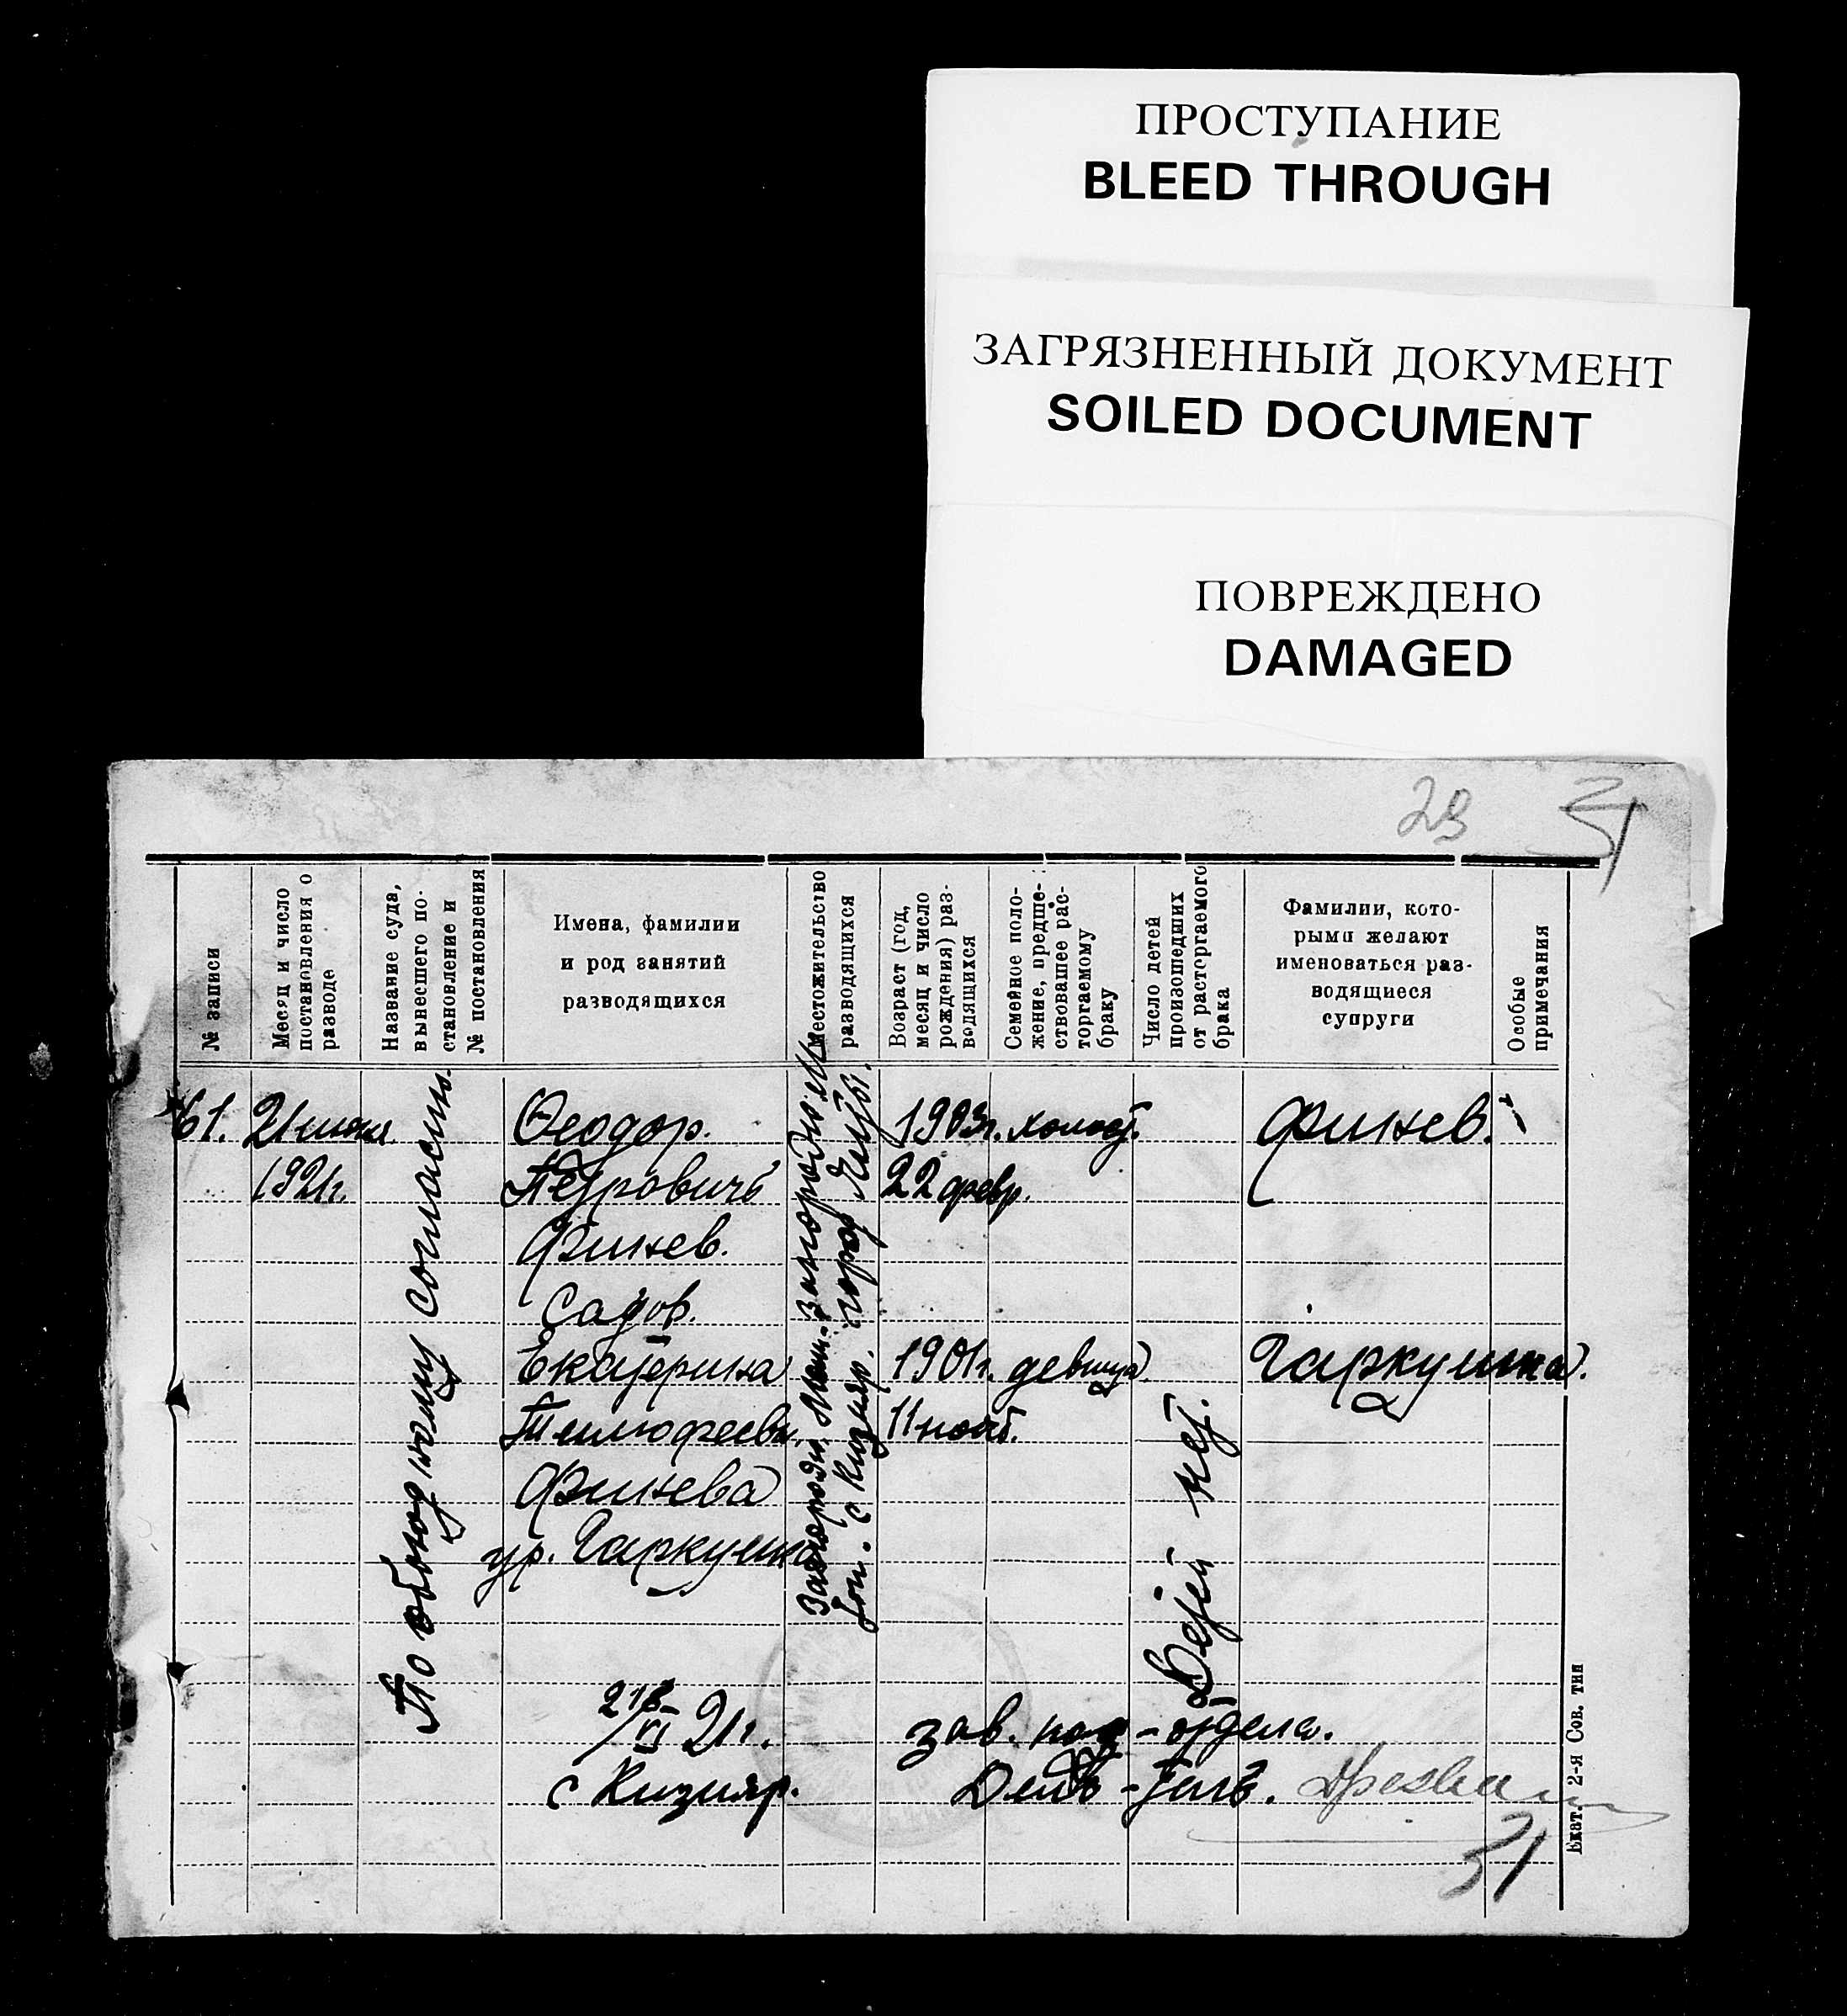 ПРОСТУПАНИЕ
BLEED THROUGH
ЗАГРЯЗНЕННЫЙ ДОКУМЕНТ
SOILED DOCUMENT
ПОВРЕЖДЕНО
DAMAGED
29 31
№ записи
Месяц и число
постановления о
разводе
Название суда,
вынесшего по-
становление и
№ постановления
Имена, фамилии
и род занятий
разводящихся
Местожительство
разводящихся
Возраст (год,
месяц и число
рождения) раз-
водящихся
Семейное поло-
жение, предше-
ствовавшее рас-
торгаемому
браку
Число детей
произошедших
от расторгаемого
брака
Фамилии, кото-
рыми желают
именоваться раз-
водящиеся
супруги
Особые
примечания
61.
21 июня
1921г.
По обоюдному согласию.
Феодор.
Петровичъ
Финев.
Садов.
Екатерина
Тимофеевн.
Финева
ур. Гаркуша
с Кизияр. город
1903г.
22 февр.
1901г.
11 нояб.
холост.
девица.
Детей нет.
Финев.
Гаркуша.
21г.
с Кизияр.
зав. под-отдела.
31
Екат. 2-я Сов. тип